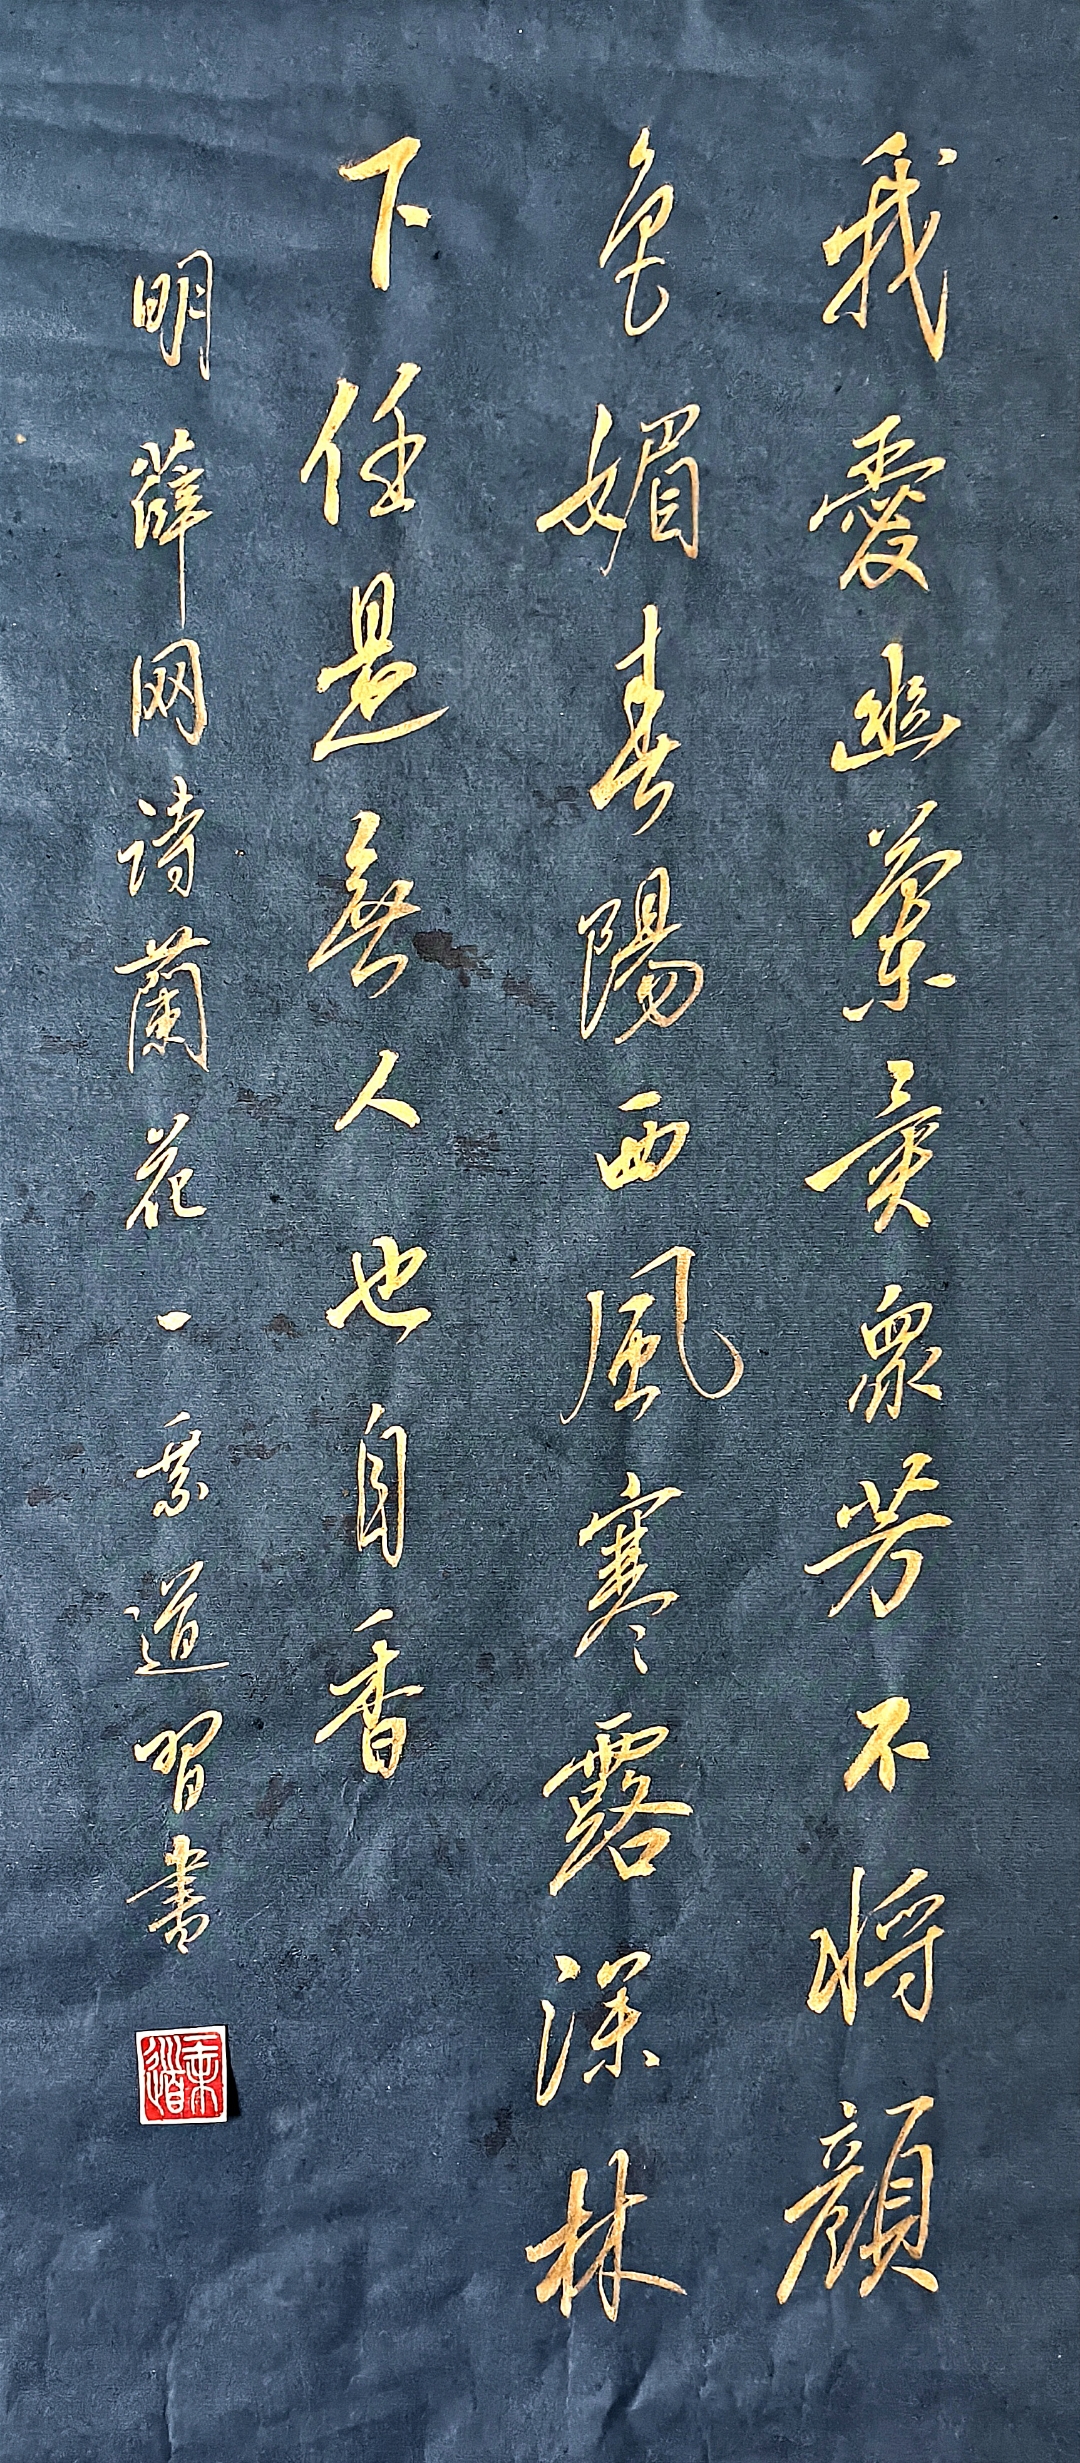 我愛幽蘭異衆芳不將顔
色媚春陽西風寒露深林
下任是無人也自香
明薛网詩蘭花一素道習書